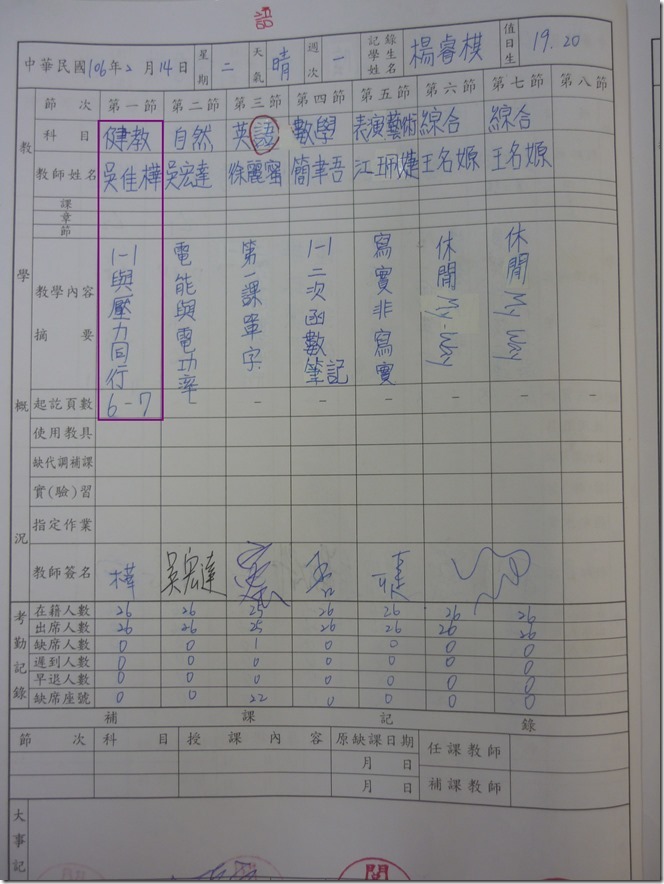 語
中華民國106年2月14日 星期 二 天氣 晴 週次 一 記錄學生姓名 楊睿棋 值日生 19.20
節次 第一節 第二節 第三節 第四節 第五節 第六節 第七節 第八節
科目 健教 自然 英語 數學 表演藝術 綜合 綜合
教師姓名 吳佳樺 吳宏達 徐麗蜜 簡聿吾 江珮婕 王名嫄 王名嫄
課
章
節
教學概況
教學內容摘要 1-1與壓力同行 電能與電功率 第一課單字 1-1二次函數筆記 寫實非寫實 休閒My-Way 休閒My Way
起訖頁數 6-7 – – – – – – –
使用教具
缺代調補課
實(驗)習
指定作業
教師簽名 樺 吳宏達
考勤記錄
在籍人數 26 26 25 26 26 26 26
出席人數 26 26 25 26 26 26 26
缺席人數 0 0 1 0 0 0 0
遲到人數 0 0 0 0 0 0 0
早退人數 0 0 0 0 0 0 0
缺席座號 0 0 22 0 0 0 0
補課記錄
節次 科目 授課內容 原缺課日期 任課教師
月 日
月 日 補課教師
大事記